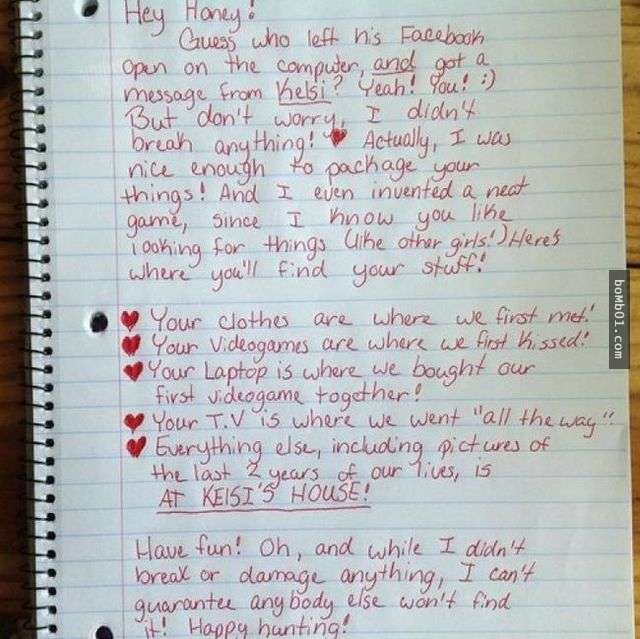 Hey Honey!
Guess who left his Facebook
open on the computer, and got a
message from Kelsi? Yeah! You! :)
But don't worry, I didn't
break anything! ♥ Actually, I was
nice enough to package your
things! And I even invented a neat
game, since I know you like
looking for things (like other girls!) Here's
where you'll find your stuff!
♥ Your clothes are where we first met!
♥ Your Videogames are where we first kissed!
♥ Your Laptop is where we bought our
first videogame together!
♥ Your T.V is where we went "all the way".
♥ Everything else, including pictures of
the last 2 years of our lives, is
AT KELSI'S HOUSE!
Have fun! Oh, and while I didn't
break or damage anything, I can't
guarantee anybody else won't find
it! Happy hunting!
bomb01.com